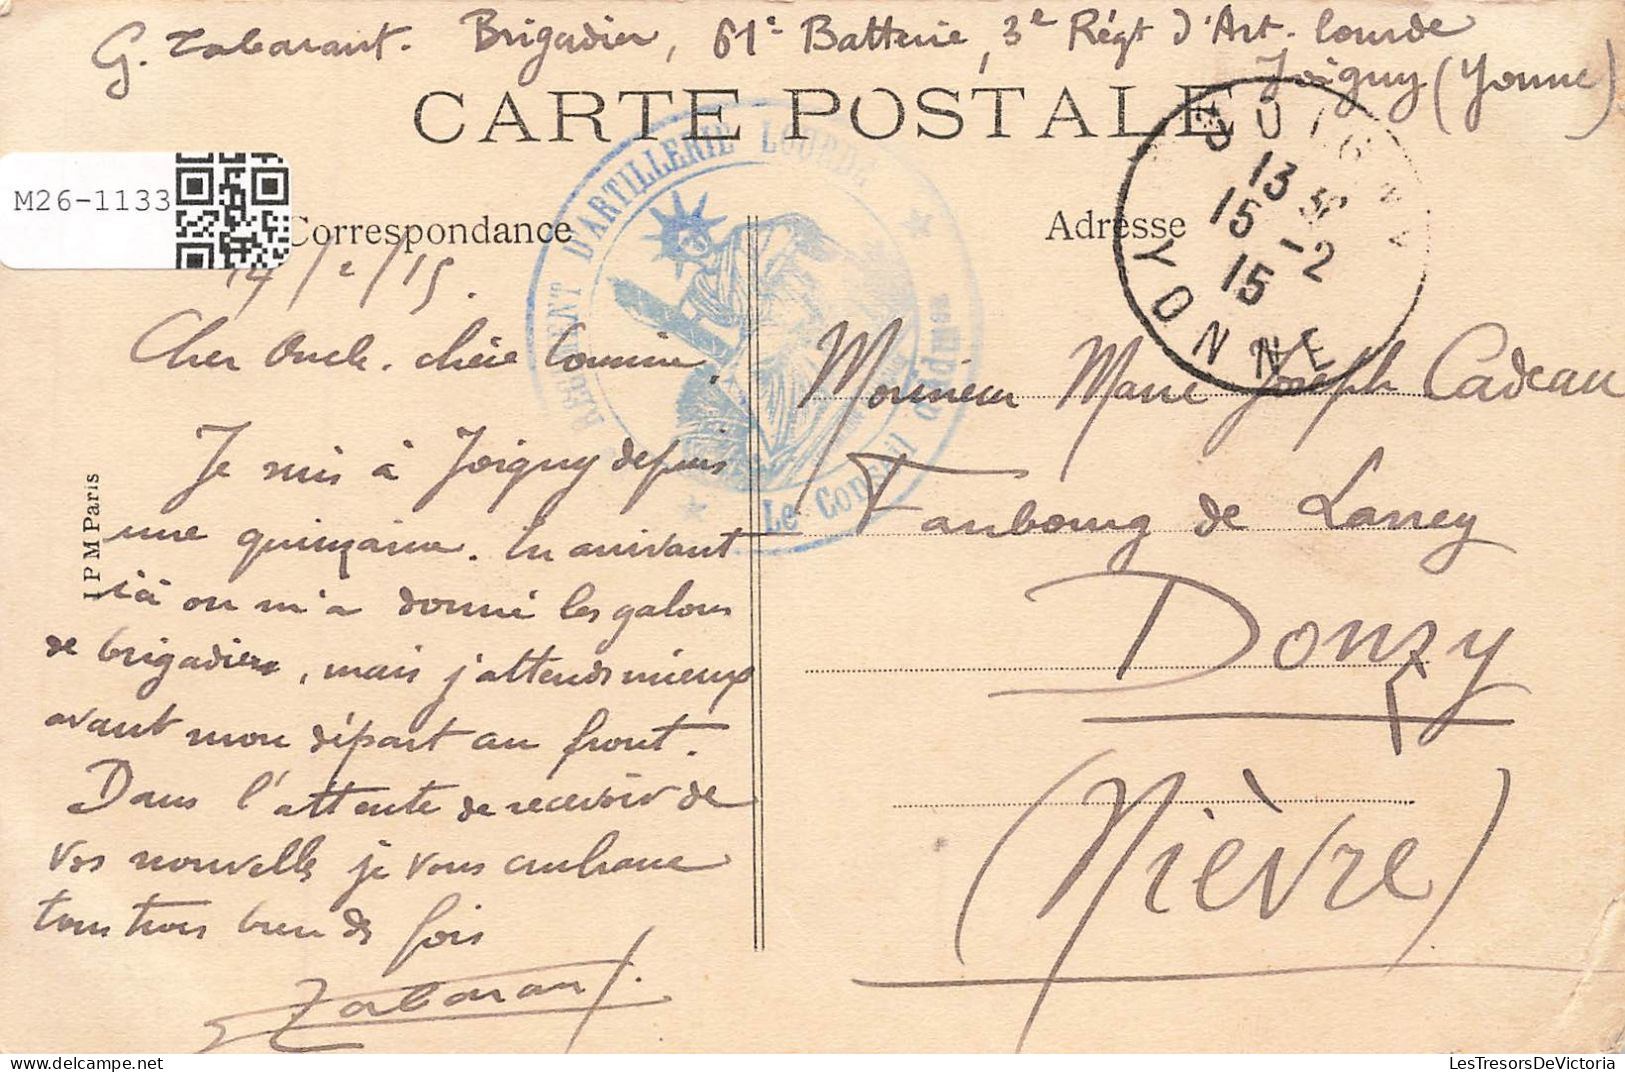 G. Tabarant. Brigadier, 61e Batterie, 3e Régt d'Art. lourde
Joigny (Yonne)
CARTE POSTALE
M26-1133
Correspondance
Adresse
RÉGIMENT D'ARTILLERIE LOURDE
Le Conseil d'Admon
JOIGNY
13 30
15 - 2
15
YONNE
14/2/15.
Cher Oncle. chère Cousine,
Je suis à Joigny depuis
une quinzaine. En arrivant
ici on m'a donné les galons
de brigadier, mais j'attends mieux
avant mon départ au front.
Dans l'attente de recevoir de
vos nouvelles je vous embrasse
tous trois bien des fois
Tabarant.
I P M Paris
Monsieur Marie Joseph Cadeau
Faubourg de
Donzy
(Nièvre)
LesTresorsDeVictoria
delcampe.net